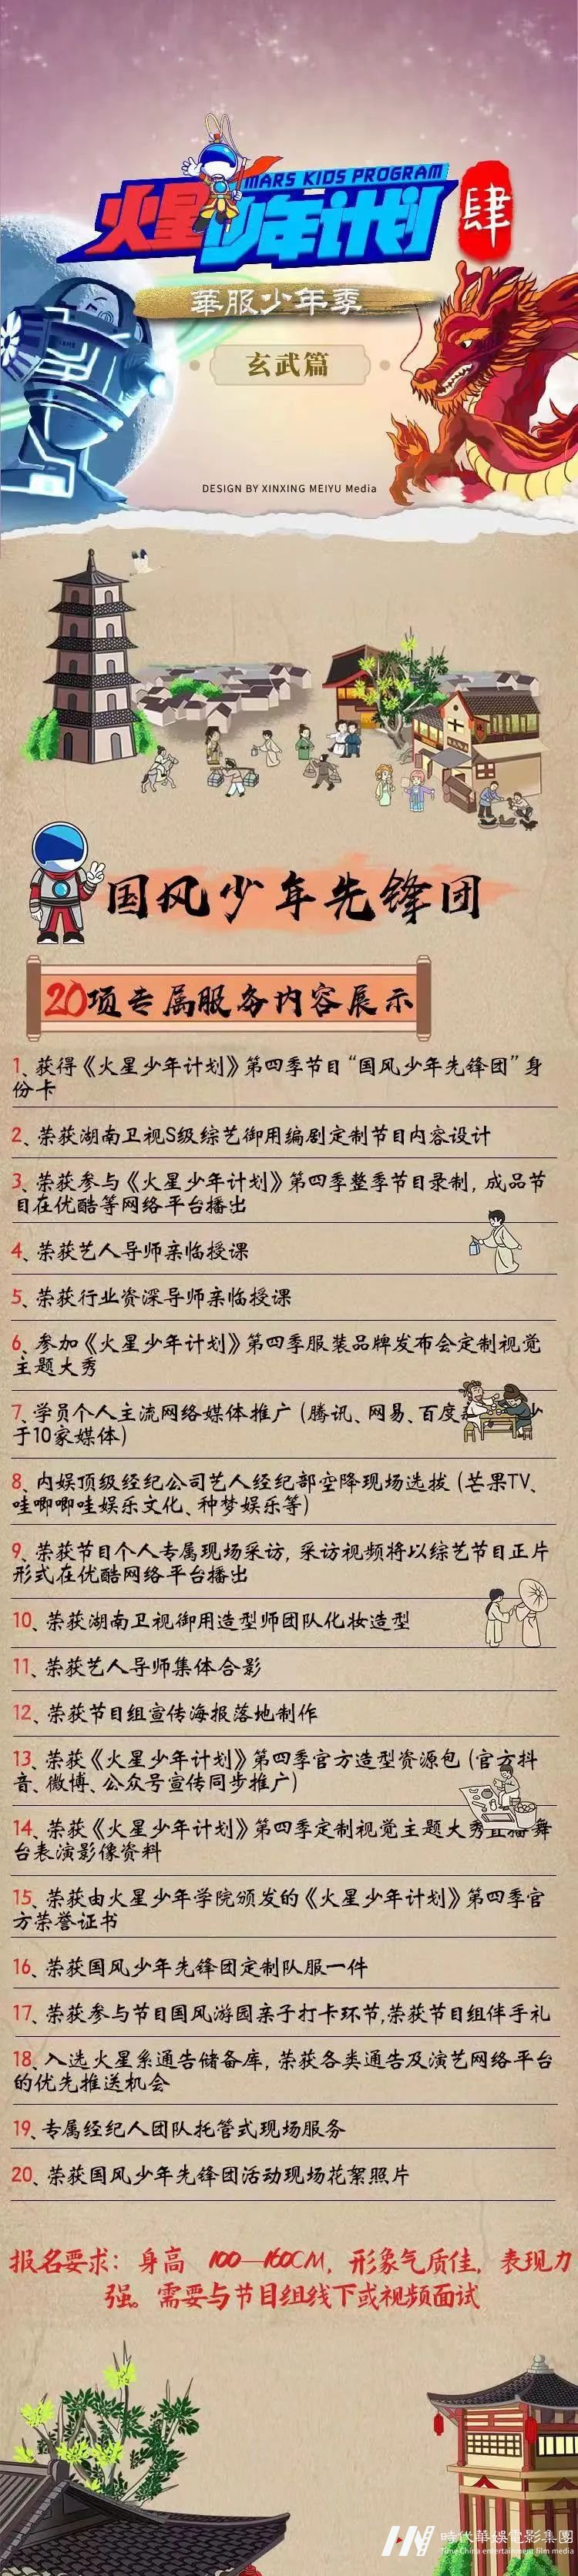 MARS KIDS PROGRAM
火星少年计划
肆
華服少年季
玄武篇
DESIGN BY XINXING MEIYU Media
国风少年先锋团
20项专属服务内容展示
1、获得《火星少年计划》第四季节目“国风少年先锋团”身
份卡
2、荣获湖南卫视S级综艺御用编剧定制节目内容设计
3、荣获参与《火星少年计划》第四季整季节目录制，成品节
目在优酷等网络平台播出
4、荣获艺人导师亲临授课
5、荣获行业资深导师亲临授课
6、参加《火星少年计划》第四季服装品牌发布会定制视觉
主题大秀
7、学员个人主流网络媒体推广（腾讯、网易、百度 少
于10家媒体）
8、内娱顶级经纪公司艺人经纪部空降现场选拔（芒果TV、
哇唧唧哇娱乐文化、种梦娱乐等）
9、荣获节目个人专属现场采访，采访视频将以综艺节目正片
形式在优酷网络平台播出
10、荣获湖南卫视御用造型师团队化妆造型
11、荣获艺人导师集体合影
12、荣获节目组宣传海报落地制作
13、荣获《火星少年计划》第四季官方造型资源包（官方抖
音、微博、公众号宣传同步推广）
14、荣获《火星少年计划》第四季定制视觉主题大秀直播舞
台表演影像资料
15、荣获由火星少年学院颁发的《火星少年计划》第四季官
方荣誉证书
16、荣获国风少年先锋团定制队服一件
17、荣获参与节目国风游园亲子打卡环节,荣获节目组伴手礼
18、入选火星系通告储备库，荣获各类通告及演艺网络平台
的优先推送机会
19、专属经纪人团队托管式现场服务
20、荣获国风少年先锋团活动现场花絮照片
报名要求：身高 100—160CM，形象气质佳，表现力
强。需要与节目组线下或视频面试
時代華娛電影集團
Time China entertainment film media